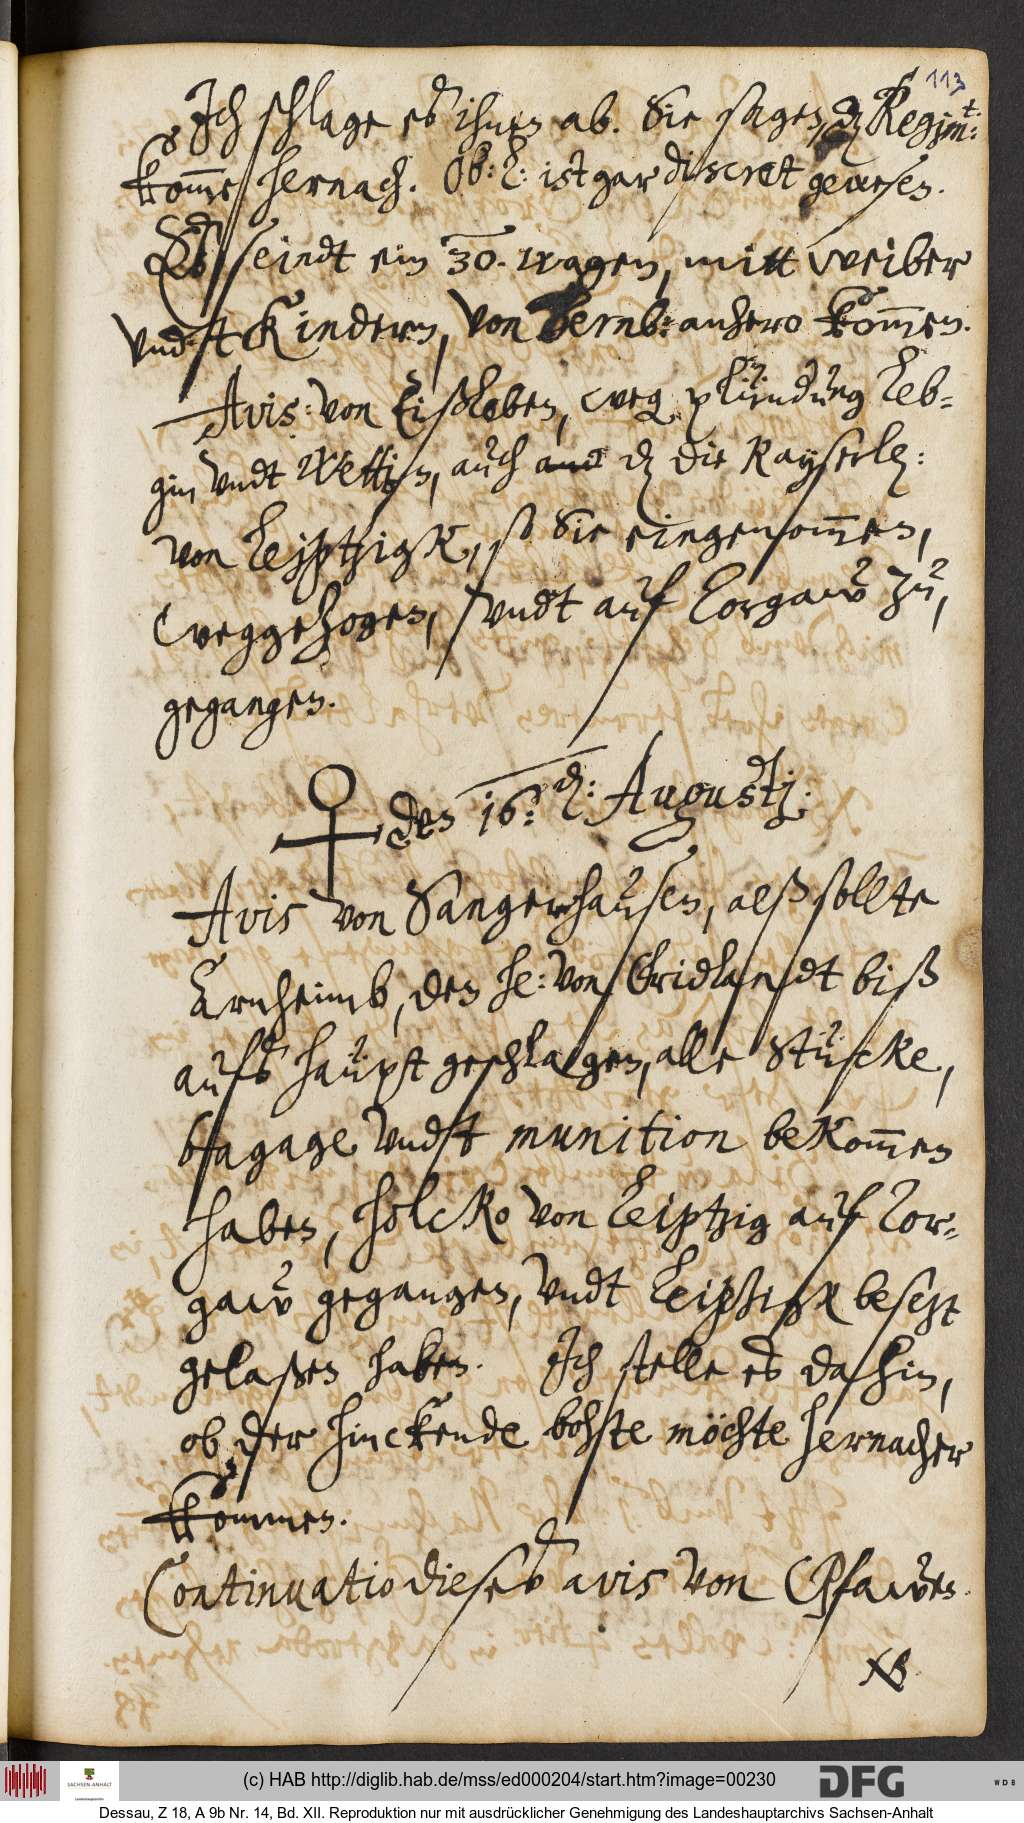 113
Ich schlage es ihnen ab. Sie sagen, dz Regim:t
komme hernach. Ob: L: ist gar discret gewesen.
Es seindt ein 30. wagen, mitt weiber
vndt Kindern, von Bernb: anhero kommen.
Avis: von Eißleben, weg plünderung Leb-
gin vndt Wettin, auch dz die Kayserl:
von Leiptzigk, so Sie eingenommen,
weggezogen, vndt auf Torgaw zu,
gegangen.
♀ den 16: d: Augustj:
Avis von Sangerhausen, alß sollte
Arnheimb, den he: von Fridlandt biß
aufs haüpt geschlagen, alle Stücke,
bagage vndt munition bekommen
haben, Holcko von Leiptzig auf Tor-
gaw gegangen, vndt Leiptzigk besezt
gelaßen haben. Ich stelle es dahin,
ob der hinckende bohte möchte hernacher
kommen.
Continuatio dieses avis von Pfawen.
XB
(c) HAB http://diglib.hab.de/mss/ed000204/start.htm?image=00230
SACHSEN-ANHALT
DFG
WDB
Dessau, Z 18, A 9b Nr. 14, Bd. XII. Reproduktion nur mit ausdrücklicher Genehmigung des Landeshauptarchivs Sachsen-Anhalt